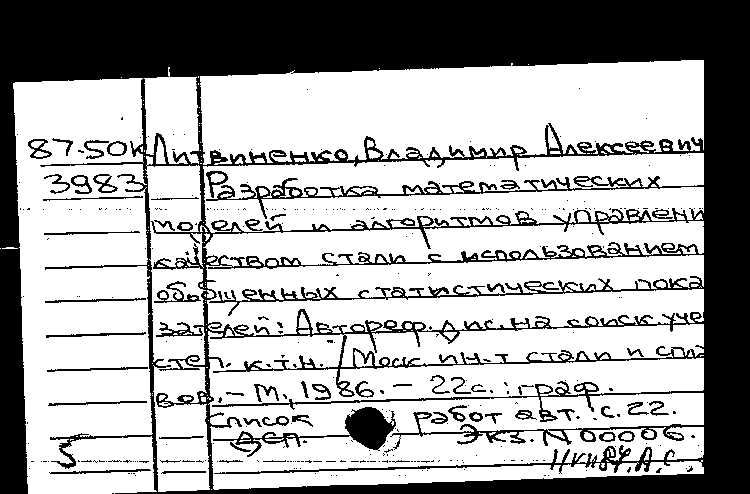 87-50к Литвиненко, Владимир Алексеевич
3983 Разработка математических
моделей и алгоритмов управлени
качеством стали с использованием
обобщенных статистических пока
зателей: Автореф. дис. на соиск. уче
степ. к.т.н. / Моск. ин-т стали и спла
вов. – М., 1986. – 22с. : граф.
Список работ авт.: с. 22.
ДСП. Экз. N 00006.
5